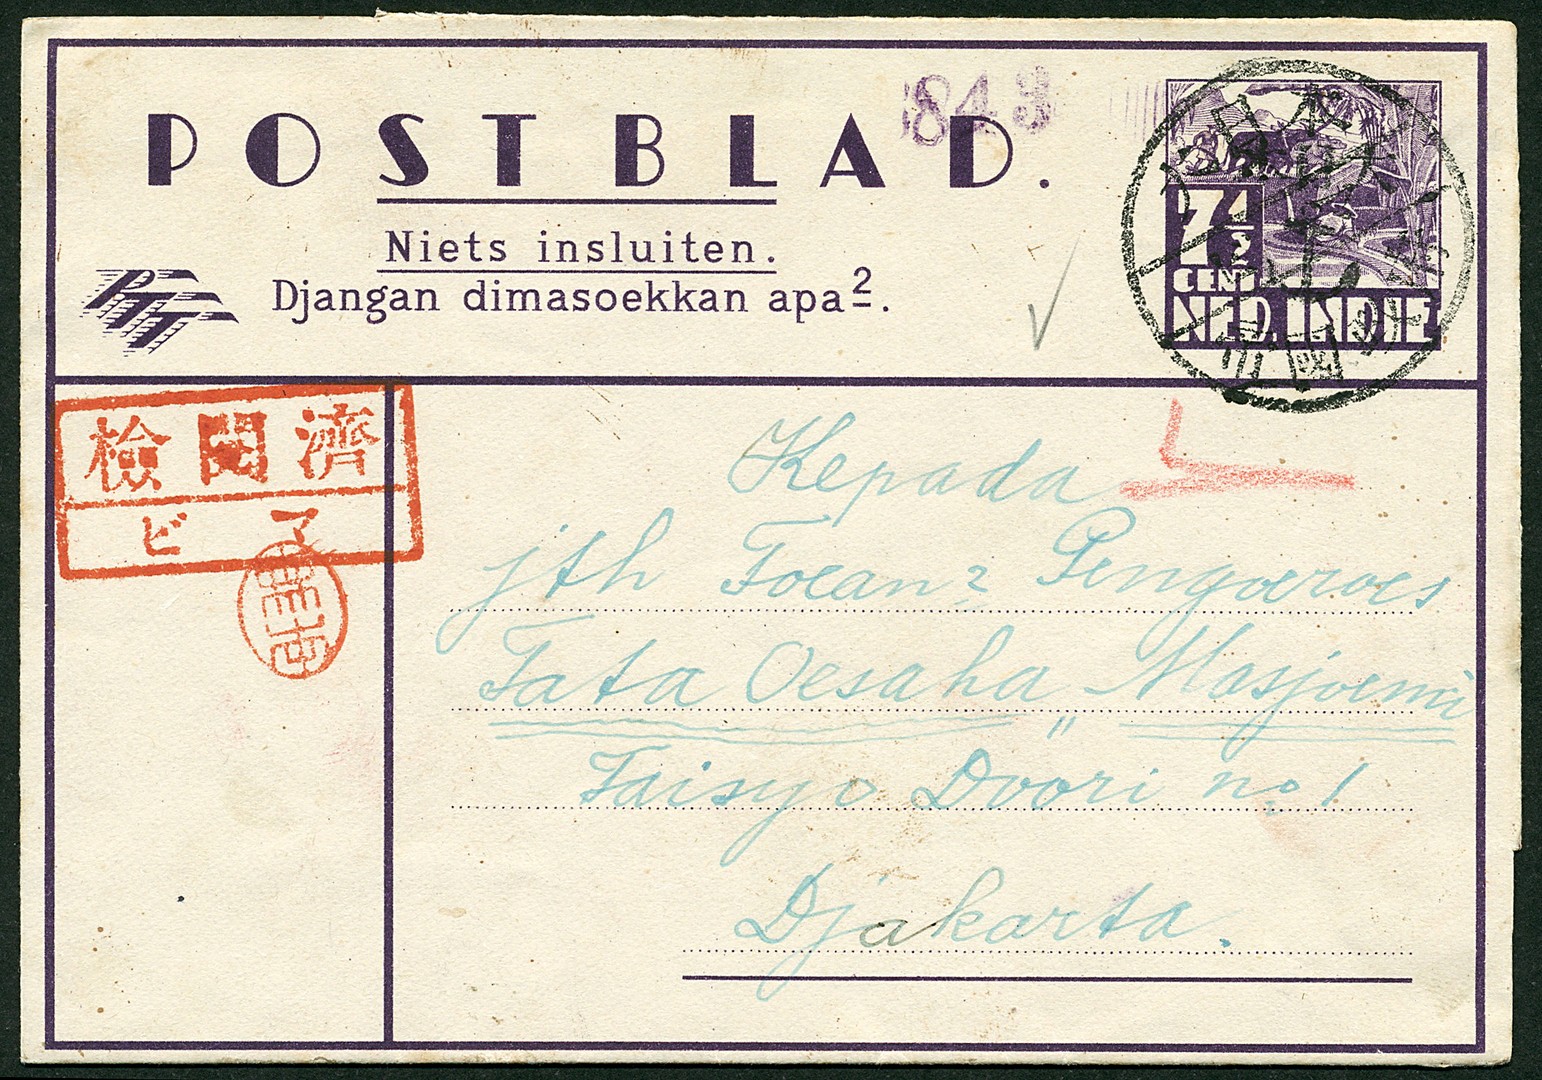 POSTBLAD.
Niets insluiten.
Djangan dimasoekkan apa2.
PTT
843
7½
CENT
NED. INDIE
検閲済
ビマ
Kepada
jth Toean2 Pengoeroes
Tata Oesaha „Masjoemi
Taisyo Doori no 1
Djakarta.